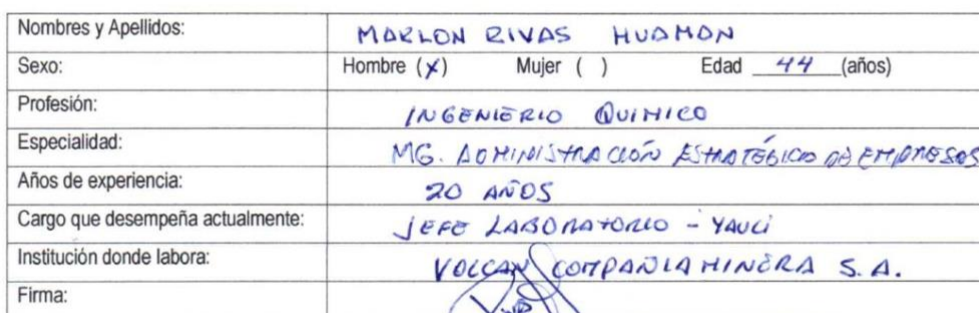 Nombres y Apellidos: MARLON RIVAS HUAMAN
Sexo: Hombre (x) Mujer ( ) Edad 44 (años)
Profesión: INGENIERIO QUIMICO
Especialidad: MG. ADMINISTRACIÓN ESTRATÉGICO DE EMPRESAS
Años de experiencia: 20 AÑOS
Cargo que desempeña actualmente: JEFE LABORATORIO - YAULI
Institución donde labora: VOLCAN COMPAÑIA MINERA S.A.
Firma: